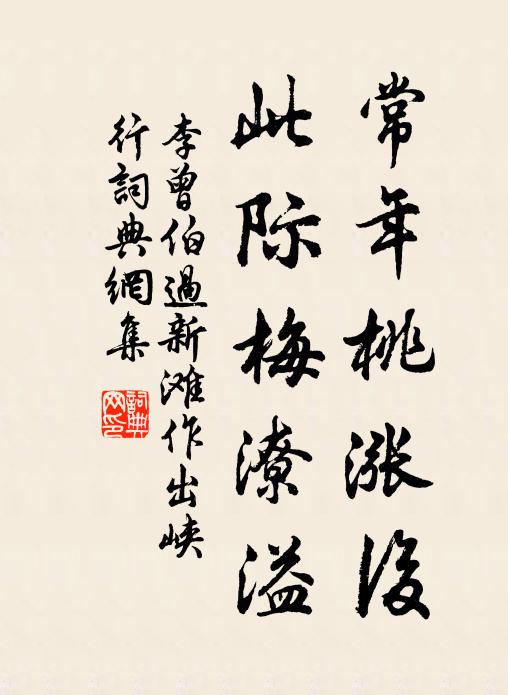 常年桃涨後
此际梅潦溢
李曾伯過新滩作出峡
行詞典網集
詞典
网印